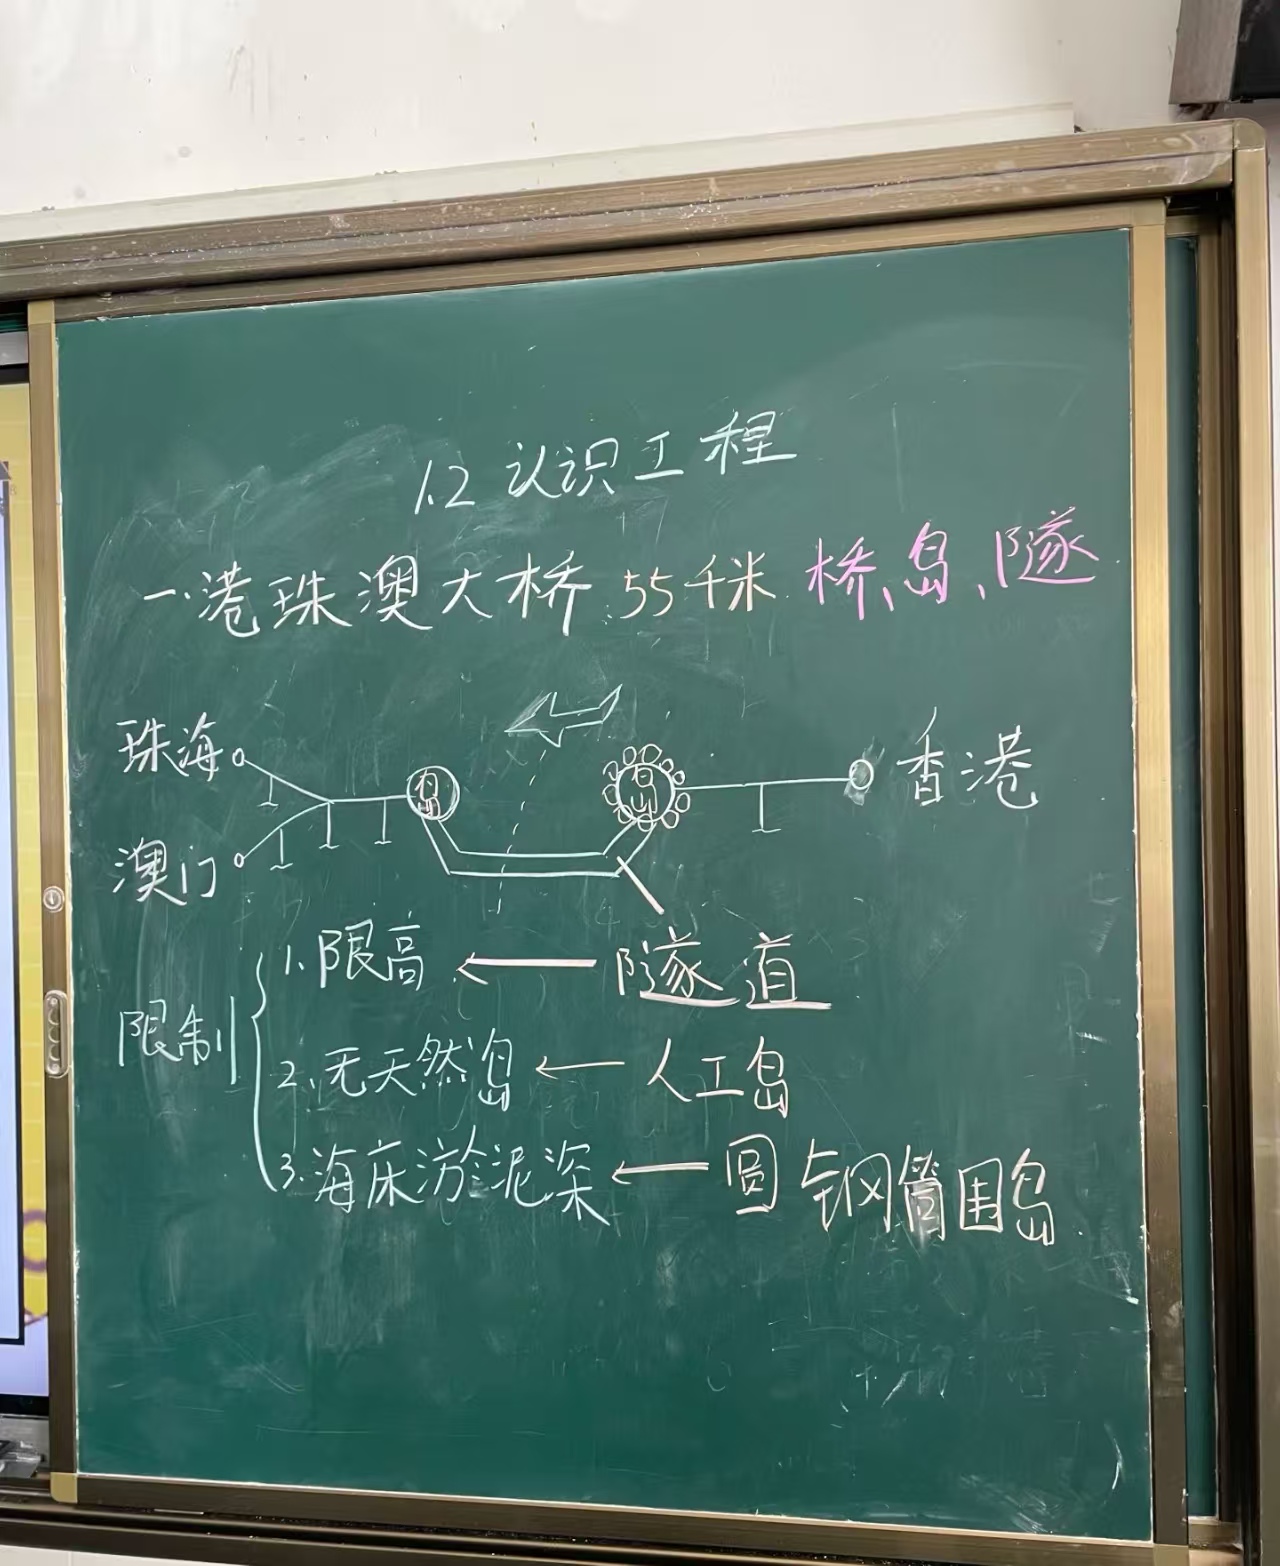 1.2 认识工程
一.港珠澳大桥 55千米 桥、岛、隧
珠海 岛 岛 香港
澳门
限制
1.限高 ← 隧道
2.无天然岛 ← 人工岛
3.海床淤泥深 ← 圆钢筒围岛